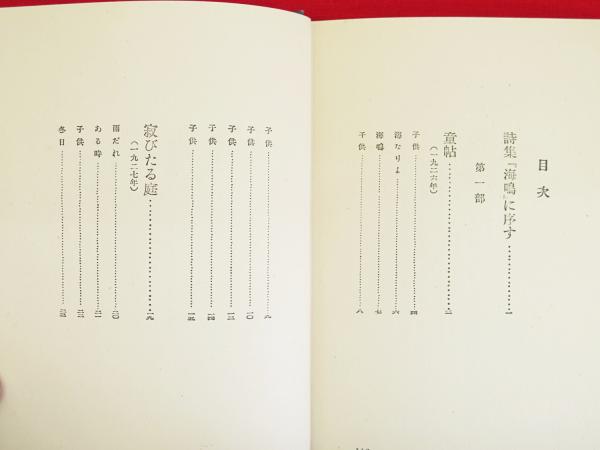 目次
詩集『海鳴』に序す…………一
第一部
童帖…………二
(一九二六年)
子供…………四
海なりよ…………六
海鳴…………七
子供…………八
子供…………九
子供…………一〇
子供…………一二
子供…………一四
子供…………一五
寂びたる庭…………一九
(一九二七年)
雨だれ…………二〇
ある時…………二一
子供…………二二
冬日…………二三